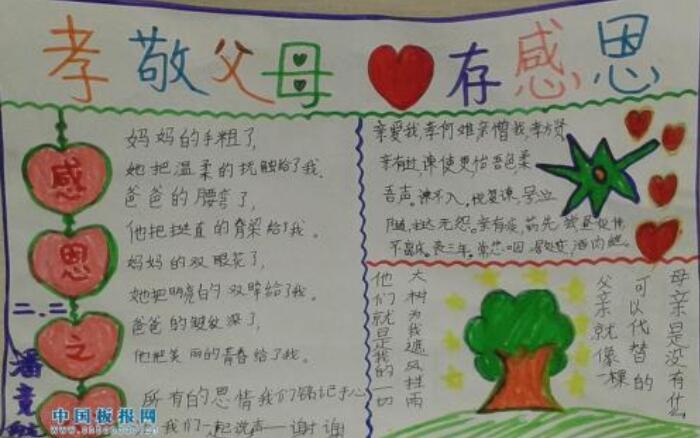 孝敬父母 存感恩
感
恩
之
二.二
潘竟
妈妈的手粗了,
她把温柔的抚触给了我.
爸爸的腰弯了,
他把挺直的脊梁给了我.
妈妈的双眼花了,
她把明亮的双眸给了我.
爸爸的皱纹深了,
他把美丽的青春给了我.
所有的恩情我们铭记于心
我们一起说声一谢谢
亲爱我,孝何难亲憎我,孝方贤
亲有过谏使更怡吾色柔
吾声.谏不入,悦复谏,号泣
随,挞无怨.亲有疾,药先
不离床.丧三年.常悲咽 居处变,酒肉绝.
母亲是没有什么
可以代替的
父亲就像一棵
大树为我遮风挡雨
他们就是我的一切
中国板报网